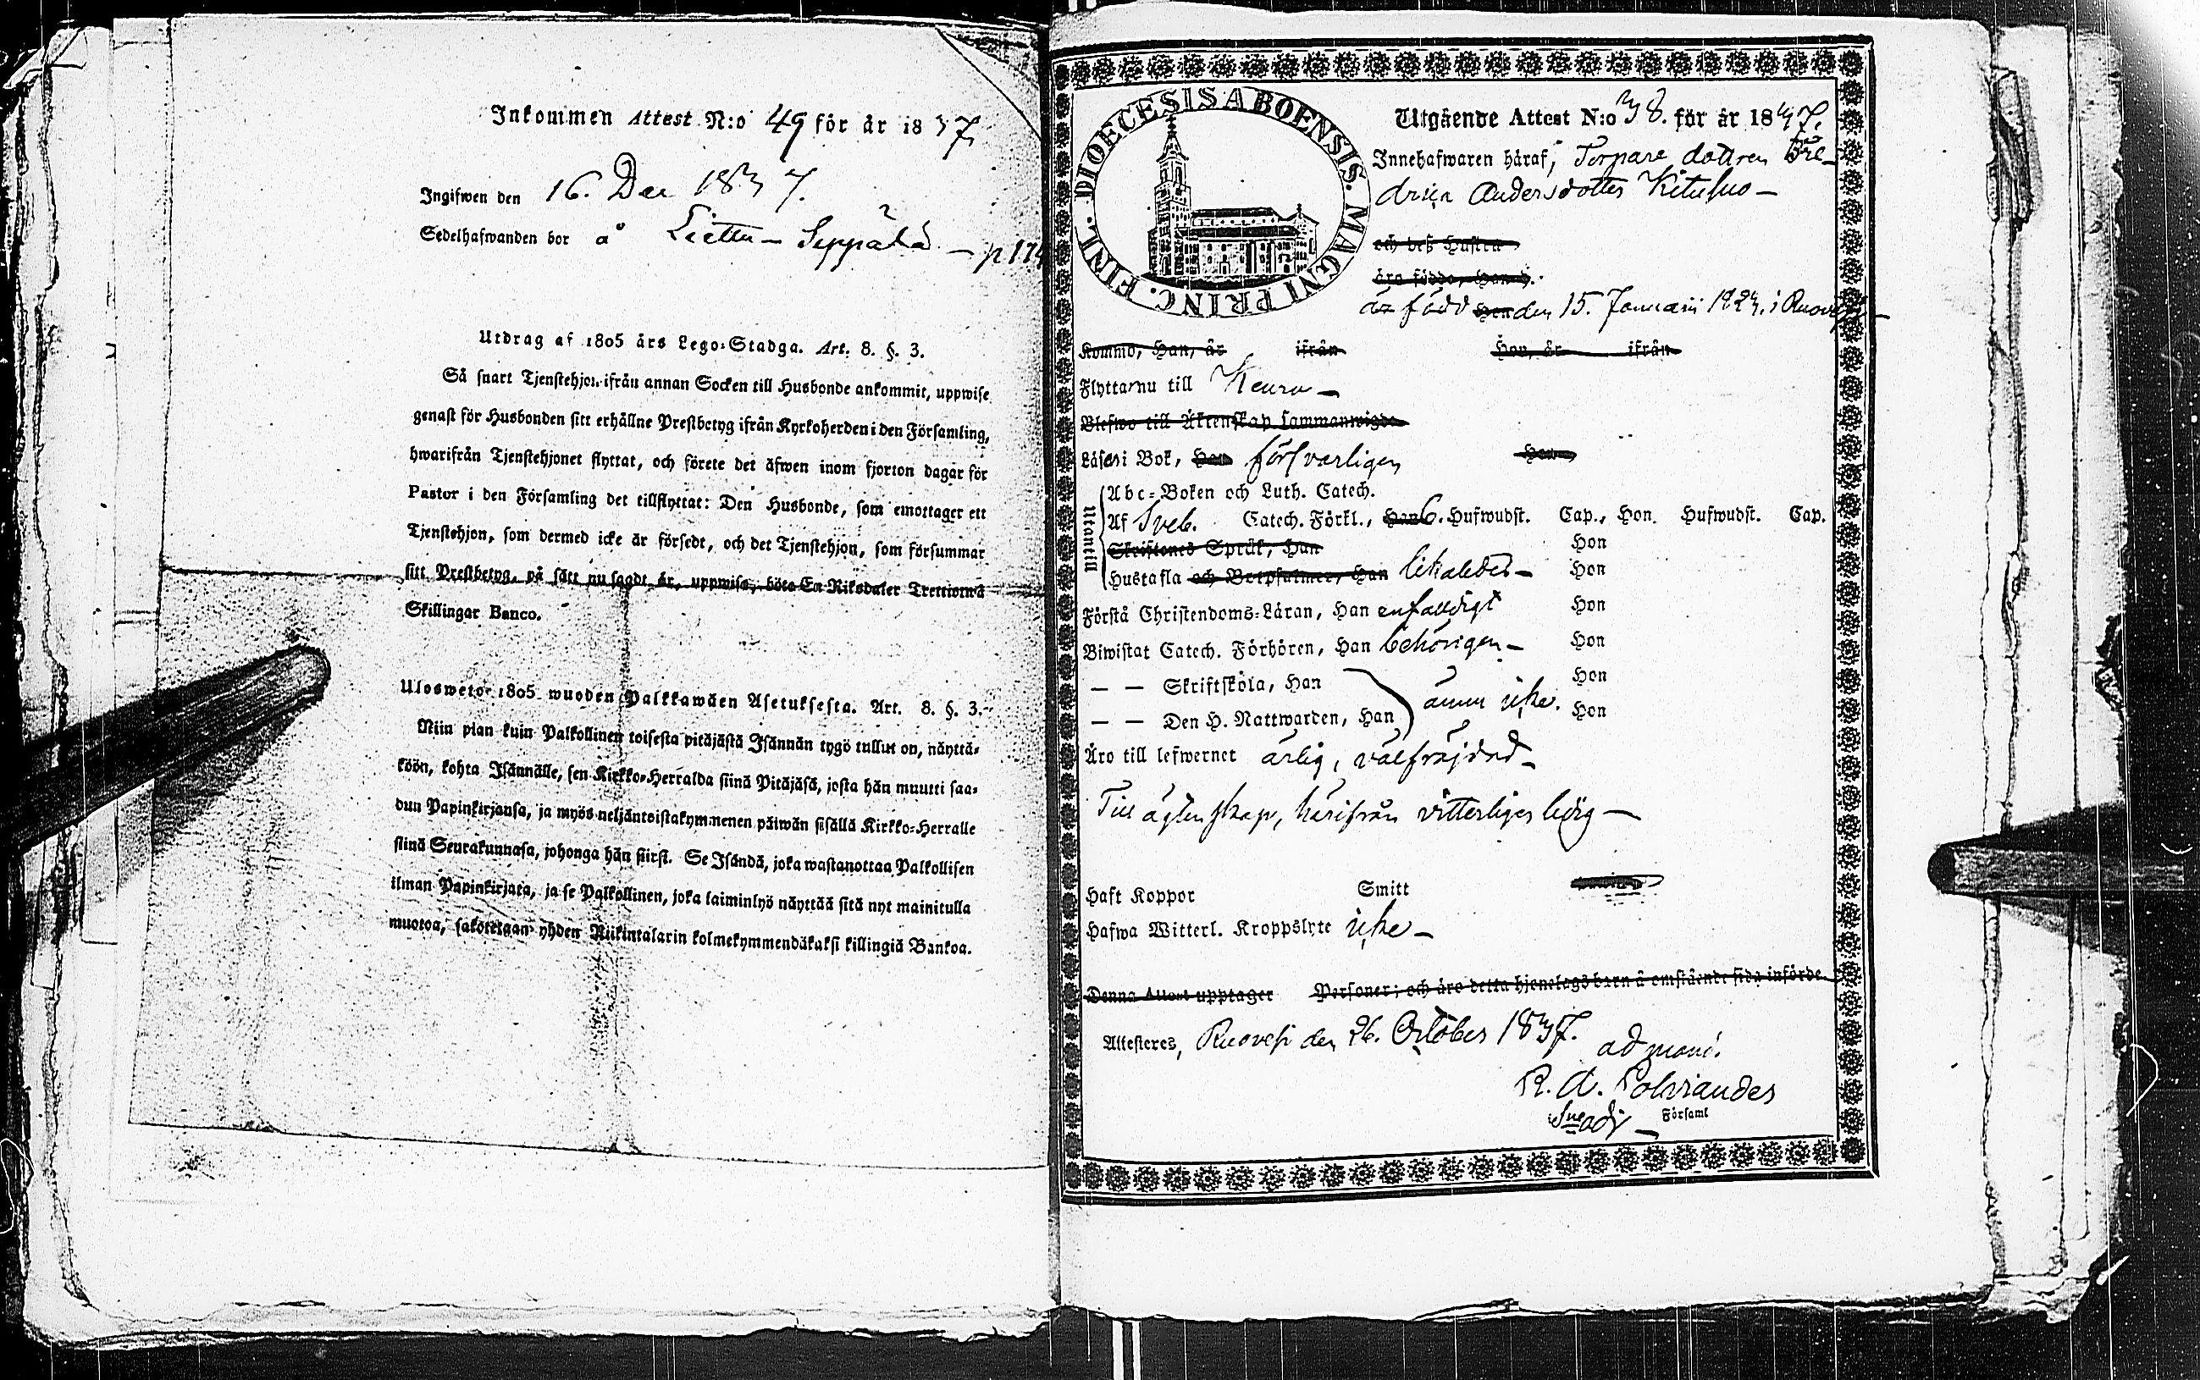 Inkommen Attest N:o 49 för år 1837
Ingifwen den 16. Dec 1837.
Sedelhafwanden bor å Liettu – Seppälä – p 174
Utdrag af 1805 års Lego-Stadga. Art. 8. §. 3.
Så snart Tjenstehjon ifrån annan Socken till Husbonde ankommit, uppwise
genast för Husbonden sitt erhållne Prestbetyg ifrån Kyrkoherden i den Församling,
hwarifrån Tjenstehjonet flyttat, och förete det äfwen inom fjorton dagar för
Pastor i den Församling det tillflyttat: Den Husbonde, som emottager ett
Tjenstehjon, som dermed icke är försedt, och det Tjenstehjon, som försummar
sitt Prestbetyg, på sätt nu sagdt är, uppwisa, böta En Riksdaler Trettiotwå
Skillingar Banco.
Uloswetor 1805 wuoden Palkkawäen Asetuksesta. Art. 8. §. 3.
Niin pian kuin Palkollinen toisesta pitäjästä Isännän tygö tullut on, näyttä-
köön, kohta Isännälle, sen Kirkko-Herralda siinä Pitäjäsä, josta hän muutti saa-
dun Papinkirjansa, ja myös neljäntoistakymmenen päiwän sisällä Kirkko-Herralle
siinä Seurakunnasa, johonga hän siirsi. Se Isändä, joka wastanottaa Palkollisen
ilman Papinkirjata, ja se Palkollinen, joka laiminlyö näyttää sitä nyt mainitulla
muotoa, sakotetaan yhden Riikintalarin kolmekymmendäkaksi killingiä Bankoa.
DIOECESIS ABOENSIS. MAGNI PRINC. FINL.
Utgående Attest N:o 38. för år 1837.
Innehafwaren häraf, Torpare dottren Fre-
drica Andersdotter Kitusuo –
och deß Hustru
äro födde, Han d.
är född Hon den 15. Januarii 1823. i Ruovesi –
Kommo, Han, år ifrån Hon, år ifrån
Flyttar nu till Keuru –
Blefwo till Äktenskap sammanwigde
Läser i Bok, Han försvarligen Hon
Utantill
Abc-Boken och Luth. Catech.
Af Sveb. Catech. Förkl., Han 6. Hufwudst. Cap., Hon Hufwudst. Cap.
Skriftenes Språk, Han Hon
Hustafla och Botpsalmer, Han likaledes – Hon
Förstå Christendoms-Läran, Han enfaldigt Hon
Biwistat Catech. Förhören, Han behörigen – Hon
— — Skriftskola, Han Hon
— — Den H. Nattwarden, Han ännu icke. Hon
Äro till lefwernet ärlig, välfräjdad –
Till ägtenskap, härifrån vitterligen ledig –
Haft Koppor Smitt
Hafwa Witterl. Kroppslyte icke –
Denna Attest upptager Personer; och äro detta hjonelags barn å omstående sida införde.
Attesteres, Ruovesi den 26. October 1837.
R. A. Polviander
Församl